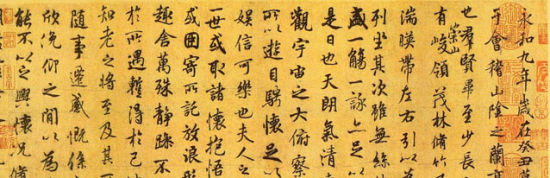 永和九年歲在癸丑
于會稽山陰之蘭亭
也羣賢畢至少長咸
有崇山峻領茂林脩竹
湍暎帶左右引以為
列坐其次雖無絲
盛一觴一詠亦足以
是日也天朗氣清
觀宇宙之大俯察
所以遊目騁懷足以
娛信可樂也夫人之
一世或取諸懷抱悟
或因寄所託放浪形
趣舍萬殊靜躁不
於所遇蹔得於己
知老之將至及其
隨事遷感慨係
欣俛仰之閒以為
能不以之興懷況